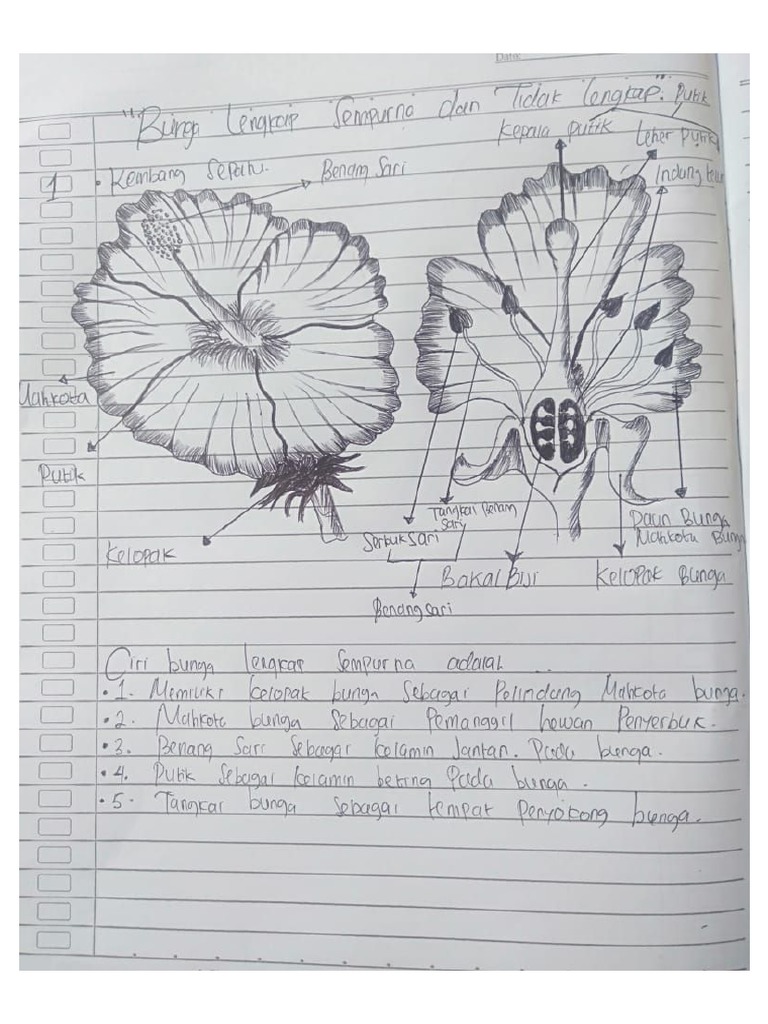 "Bunga lengkap Sempurna dan Tidak lengkap".
Putik
Kepala Putik
Leher Putik
1
• Kembang Sepatu.
Benang Sari
Indung
Mahkota
Putik
Tangkai Benang
Sari
Daun Bunga
Serbuk Sari
Mahkota Bunga
Kelopak
Bakal Biji
Kelopak Bunga
Benang sari
Ciri bunga lengkap Sempurna adalah...
• 1. Memiliki kelopak bunga Sebagai Pelindung Mahkota bunga.
• 2. Mahkota bunga Sebagai Pemanggil hewan Penyerbuk.
• 3. Benang Sari Sebagai kelamin Jantan. Pada bunga.
• 4. Putik Sebagai kelamin betina Pada bunga.
• 5. Tangkai bunga sebagai tempat Penyokong bunga.